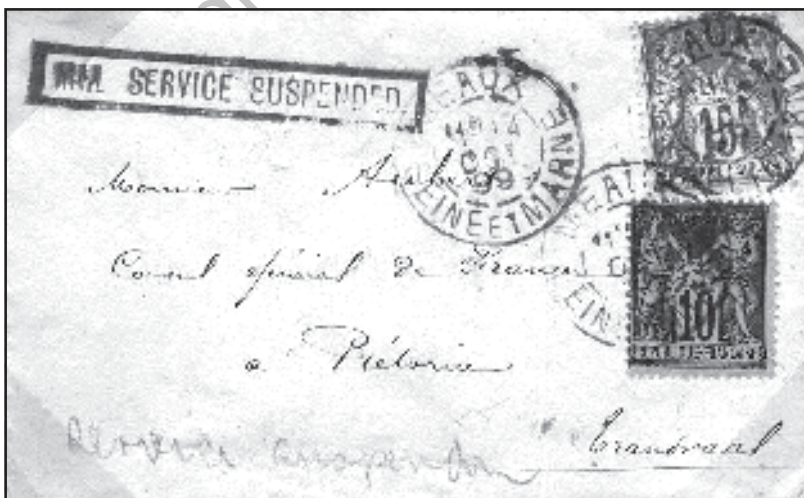 MAIL SERVICE SUSPENDED
EAUX
OCT
99
SEINE ET MARNE
15
MEAUX
10
Monsieur Aubert
Consul général de France
a Prétoria
Transvaal
Service suspended